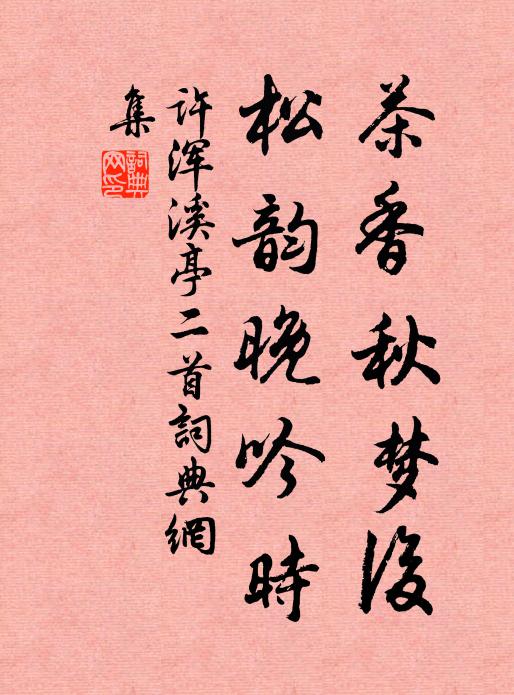 茶香秋梦後
松韵晚吟時
许浑溪亭二首詞典網
集
詞典
网印